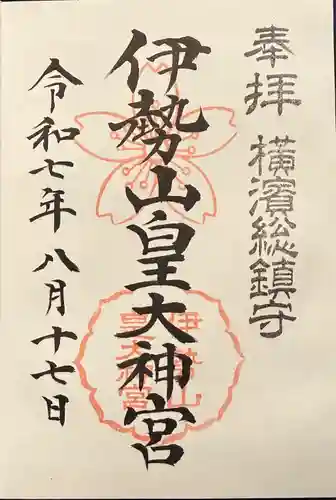 奉拝 横濱総鎮守
伊勢山皇大神宮
伊勢山
皇大神宮
令和七年八月十七日